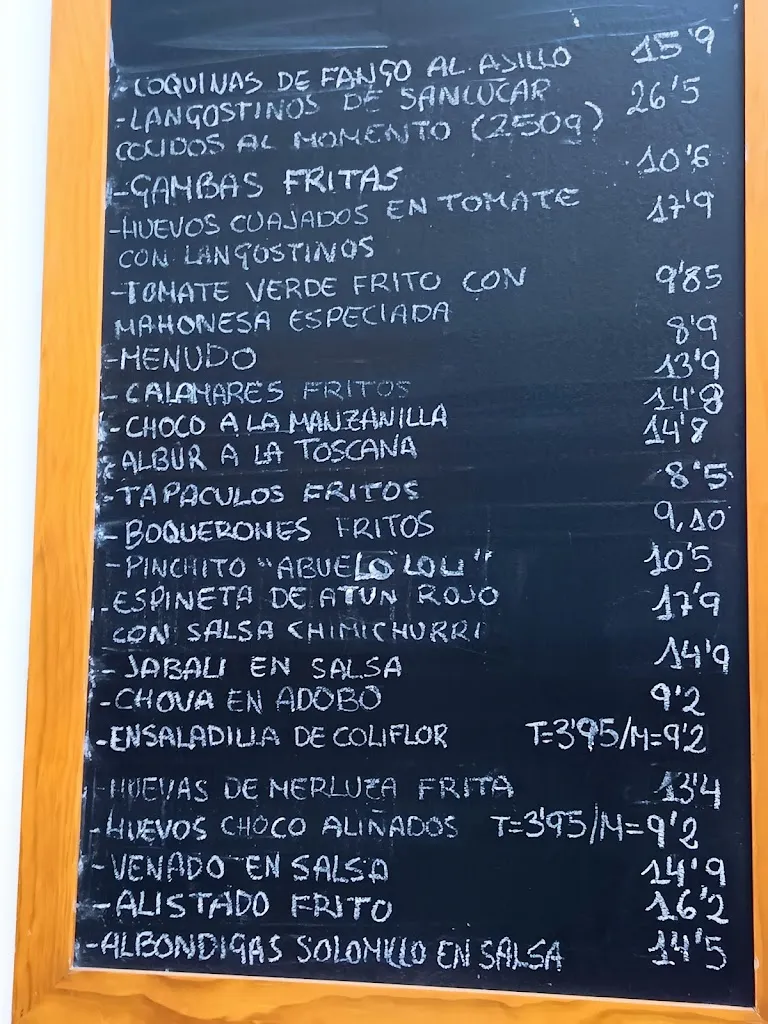 -COQUINAS DE FANGO AL AJILLO 15'9
-LANGOSTINOS DE SANLUCAR 26'5
COCIDOS AL MOMENTO (250g)
-GAMBAS FRITAS 10'6
-HUEVOS CUAJADOS EN TOMATE 17'9
CON LANGOSTINOS
-TOMATE VERDE FRITO CON 9'85
MAHONESA ESPECIADA
-MENUDO 8'9
-CALAMARES FRITOS 13'9
-CHOCO A LA MANZANILLA 14'8
-ALBUR A LA TOSCANA 14'8
-TAPACULOS FRITOS 8'5
-BOQUERONES FRITOS 9,10
-PINCHITO "ABUELO LOLI" 10'5
-ESPINETA DE ATUN ROJO 17'9
CON SALSA CHIMICHURRI
-JABALI EN SALSA 14'9
-CHOVA EN ADOBO 9'2
-ENSALADILLA DE COLIFLOR T=3'95/M=9'2
-HUEVAS DE MERLUZA FRITA 13'4
-HUEVOS CHOCO ALIÑADOS T=3'95/M=9'2
-VENADO EN SALSA 14'9
-ALISTADO FRITO 16'2
-ALBONDIGAS SOLOMILLO EN SALSA 14'5